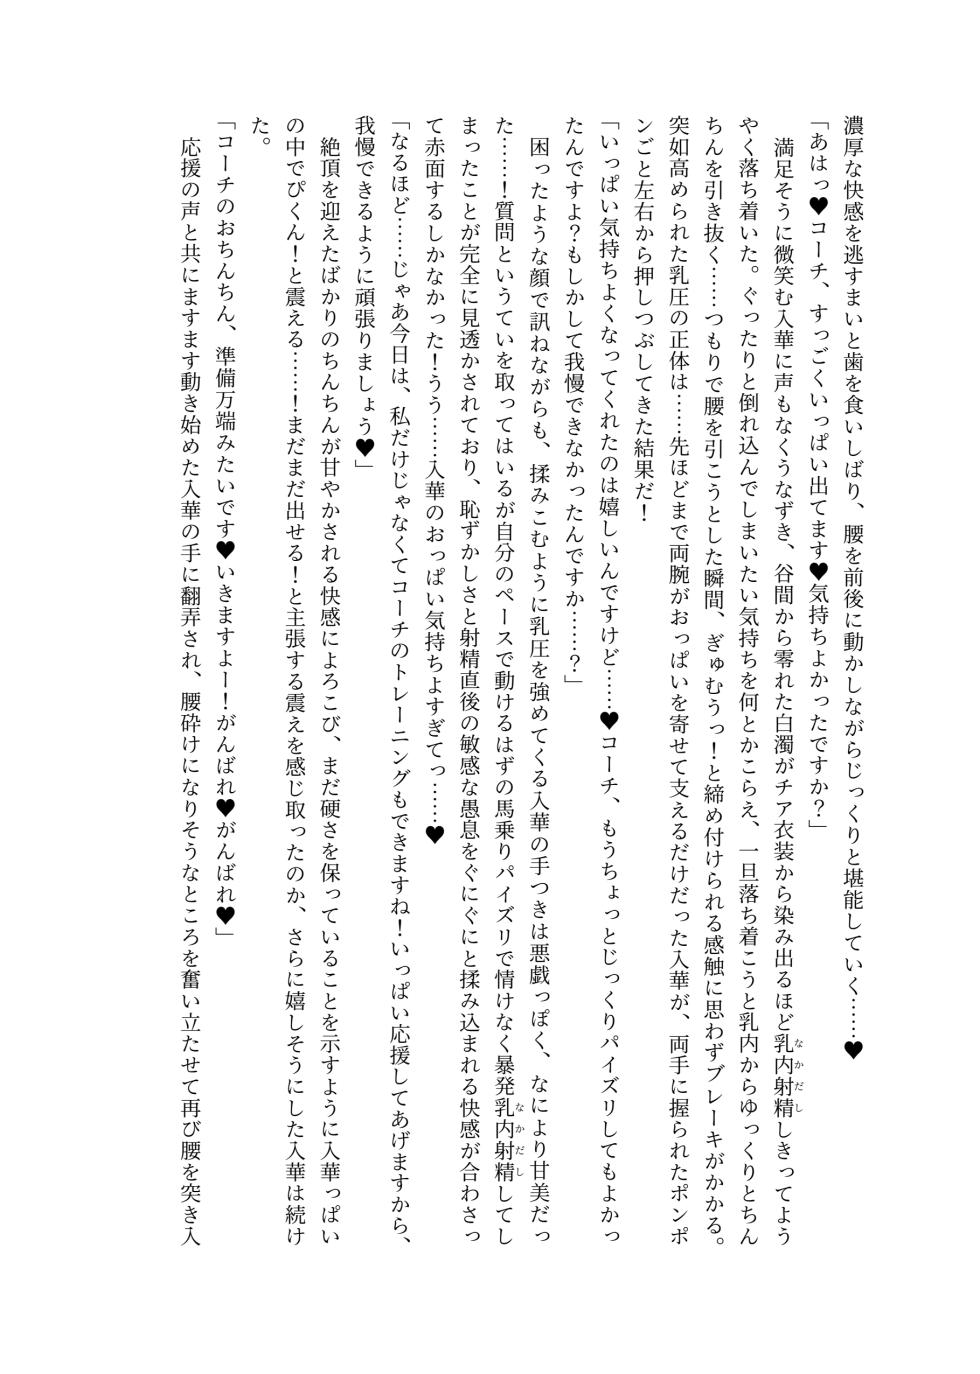 濃厚な快感を逃すまいと歯を食いしばり、腰を前後に動かしながらじっくりと堪能していく……♥
「あはっ♥コーチ、すっごくいっぱい出てます♥気持ちよかったですか？」
　満足そうに微笑む入華に声もなくうなずき、谷間から零れた白濁がチア衣装から染み出るほど乳内射精しきってよう
やく落ち着いた。ぐったりと倒れ込んでしまいたい気持ちを何とかこらえ、一旦落ち着こうと乳内からゆっくりとちん
ちんを引き抜く……つもりで腰を引こうとした瞬間、ぎゅむうっ！と締め付けられる感触に思わずブレーキがかかる。
突如高められた乳圧の正体は……先ほどまで両腕がおっぱいを寄せて支えるだけだった入華が、両手に握られたポンポ
ンごと左右から押しつぶしてきた結果だ！
「いっぱい気持ちよくなってくれたのは嬉しいんですけど……♥コーチ、もうちょっとじっくりパイズリしてもよかっ
たんですよ？もしかして我慢できなかったんですか……？」
　困ったような顔で訊ねながらも、揉みこむように乳圧を強めてくる入華の手つきは悪戯っぽく、なにより甘美だっ
た……！質問というていを取ってはいるが自分のペースで動けるはずの馬乗りパイズリで情けなく暴発乳内射精してし
まったことが完全に見透かされており、恥ずかしさと射精直後の敏感な愚息をぐにぐにと揉み込まれる快感が合わさっ
て赤面するしかなかった！うう……入華のおっぱい気持ちよすぎてっ……♥
「なるほど……じゃあ今日は、私だけじゃなくてコーチのトレーニングもできますね！いっぱい応援してあげますから、
我慢できるように頑張りましょう♥」
　絶頂を迎えたばかりのちんちんが甘やかされる快感によろこび、まだ硬さを保っていることを示すように入華っぱい
の中でぴくん！と震える……！まだまだ出せる！と主張する震えを感じ取ったのか、さらに嬉しそうにした入華は続け
た。
「コーチのおちんちん、準備万端みたいです♥いきますよー！がんばれ♥がんばれ♥」
　応援の声と共にますます動き始めた入華の手に翻弄され、腰砕けになりそうなところを奮い立たせて再び腰を突き入